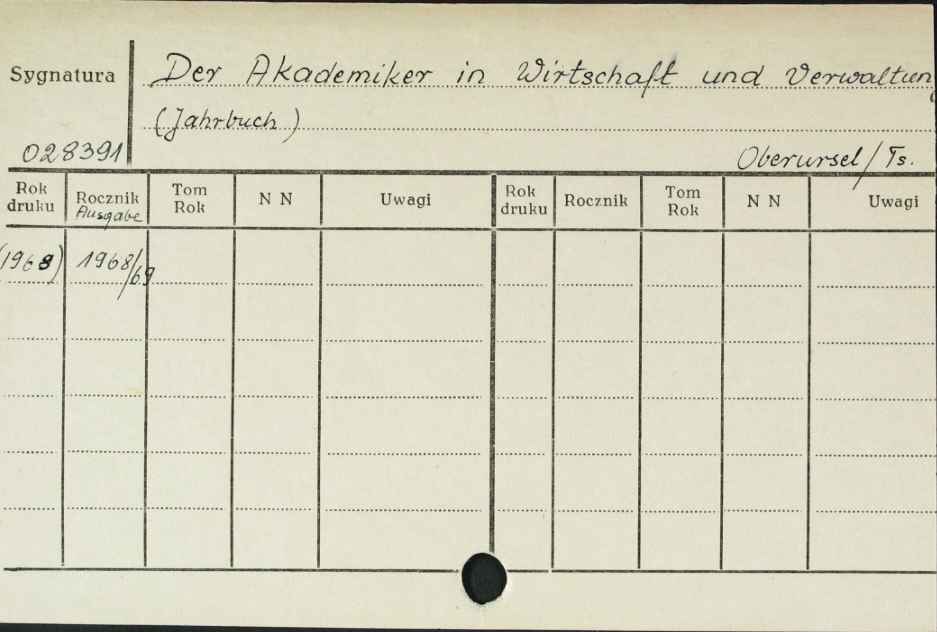 Sygnatura
Der Akademiker in Wirtschaft und Verwaltung
(Jahrbuch)
028391
Oberursel/Ts.
Rok druku Rocznik Ausgabe Tom Rok N N Uwagi Rok druku Rocznik Tom Rok N N Uwagi
(1968) 1968/69